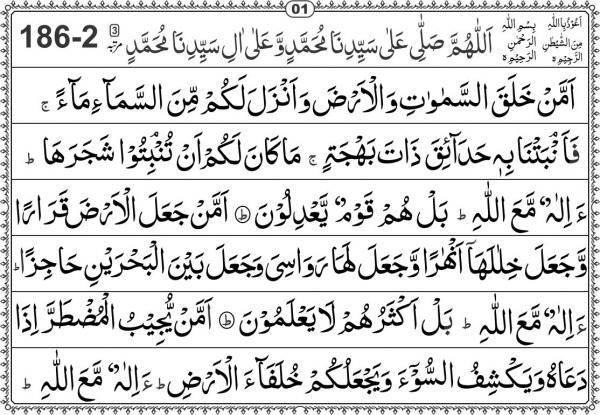 01
اَعُوْذُ بِاللّٰهِ مِنَ الشَّيْطٰنِ الرَّجِيْمِ
بِسْمِ اللّٰهِ الرَّحْمٰنِ الرَّحِيْمِ
اَللّٰهُمَّ صَلِّى عَلٰى سَيِّدِنَا مُحَمَّدٍ وَّعَلٰى اٰلِ سَيِّدِنَا مُحَمَّدٍ 3 مرتبہ 186-2
اَمَّنْ خَلَقَ السَّمٰوٰتِ وَالْاَرْضَ وَاَنْزَلَ لَكُمْ مِّنَ السَّمَآءِ مَآءً ۚ
فَاَنْۢبَتْنَا بِهٖ حَدَآئِقَ ذَاتَ بَهْجَةٍ ۚ مَا كَانَ لَكُمْ اَنْ تُنْۢبِتُوْا شَجَرَهَا ؕ
ءَاِلٰهٌ مَّعَ اللّٰهِ ؕ بَلْ هُمْ قَوْمٌ يَّعْدِلُوْنَ ؕ اَمَّنْ جَعَلَ الْاَرْضَ قَرَارًا
وَّجَعَلَ خِلٰلَهَاۤ اَنْهٰرًا وَّجَعَلَ لَهَا رَوَاسِىَ وَجَعَلَ بَيْنَ الْبَحْرَيْنِ حَاجِزًا ؕ
ءَاِلٰهٌ مَّعَ اللّٰهِ ؕ بَلْ اَكْثَرُهُمْ لَا يَعْلَمُوْنَ ؕ اَمَّنْ يُّجِيْبُ الْمُضْطَرَّ اِذَا
دَعَاهُ وَيَكْشِفُ السُّوْٓءَ وَيَجْعَلُكُمْ خُلَفَآءَ الْاَرْضِ ؕ ءَاِلٰهٌ مَّعَ اللّٰهِ ؕ